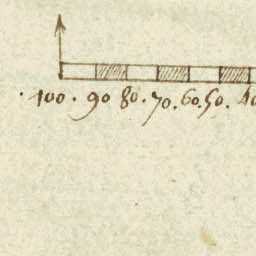 . 100 . 90 80 . 70 . 60 . 50 . 40